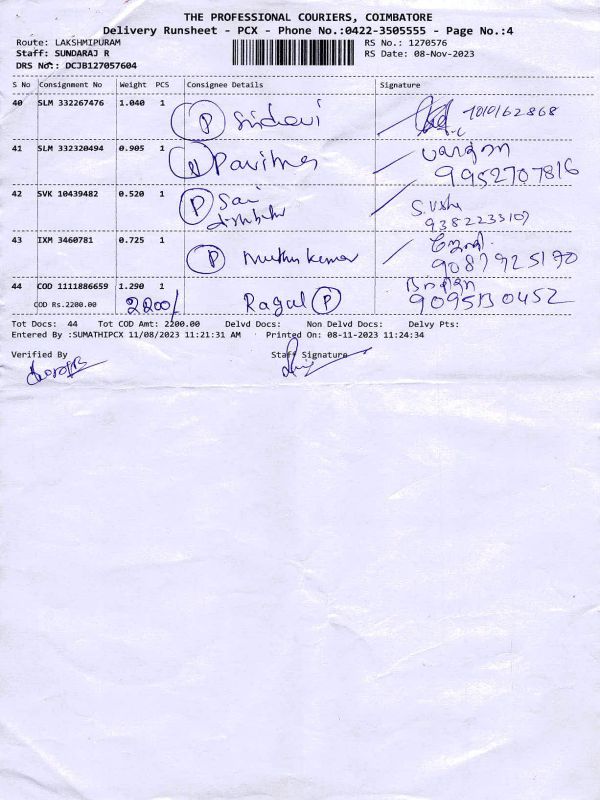 THE PROFESSIONAL COURIERS, COIMBATORE
Delivery Runsheet - PCX - Phone No.:0422-3505555 - Page No.:4
Route: LAKSHMIPURAM RS No.: 1270576
Staff: SUNDARAJ R RS Date: 08-Nov-2023
DRS No.: DCJB127057604
S No Consignment No Weight PCS Consignee Details Signature
40 SLM 332267476 1.040 1 P Sridevi
41 SLM 332320494 0.905 1 Pavithra
9952707816
42 SVK 10439482 0.520 1 P Sai S.Usha
9382233107
43 IXM 3460781 0.725 1 P Muthu Kumar
9087925170
44 COD 1111886659 1.290 1 Ragul P
COD Rs.2200.00 2200/ 9095130452
Tot Docs: 44 Tot COD Amt: 2200.00 Delvd Docs: Non Delvd Docs: Delvy Pts:
Entered By :SUMATHIPCX 11/08/2023 11:21:31 AM Printed On: 08-11-2023 11:24:34
Verified By Staff Signature